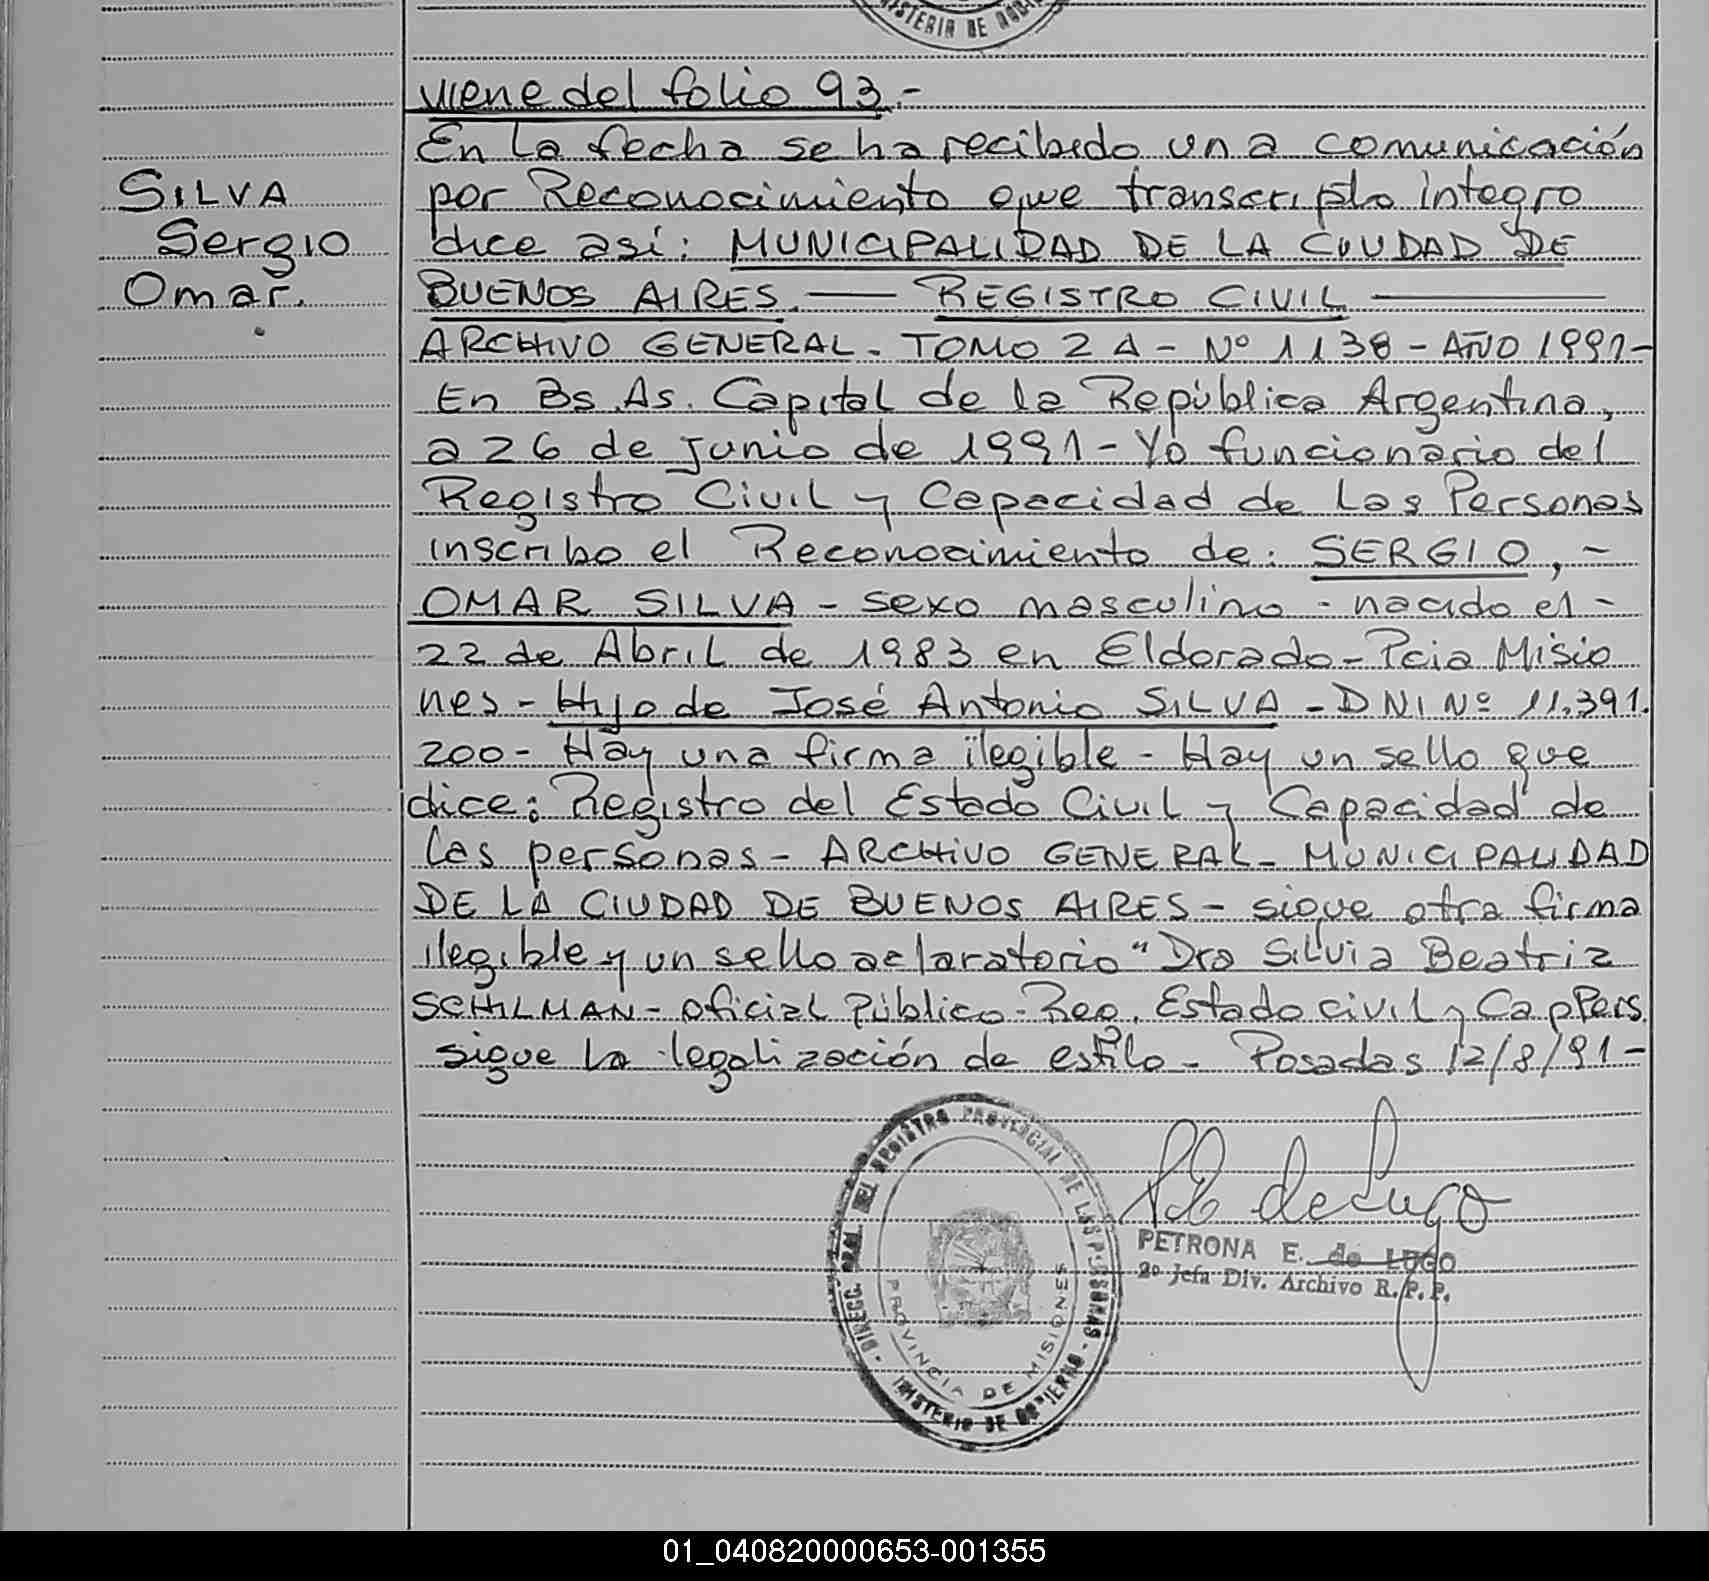 MINISTERIO DE GOBIE
viene del folio 93.-
En la fecha se ha recibido una comunicación
SILVA
por Reconocimiento que transcripto íntegro
Sergio
dice así: MUNICIPALIDAD DE LA CIUDAD DE
Omar.
BUENOS AIRES. — REGISTRO CIVIL —
ARCHIVO GENERAL - TOMO 2 A - Nº 1138 - AÑO 1991-
En Bs. As. Capital de la República Argentina,
a 26 de junio de 1991 - Yo funcionario del
Registro Civil y Capacidad de las Personas
inscribo el Reconocimiento de: SERGIO, -
OMAR SILVA - sexo masculino - nacido el -
22 de Abril de 1983 en Eldorado - Pcia Misio
nes - Hijo de José Antonio SILVA - DNI Nº 11.391.
200 - Hay una firma ilegible - Hay un sello que
dice: Registro del Estado Civil y Capacidad de
las personas - ARCHIVO GENERAL - MUNICIPALIDAD
DE LA CIUDAD DE BUENOS AIRES - sigue otra firma
ilegible y un sello aclaratorio "Dra Silvia Beatriz
SCHILMAN - Oficial Público - Reg. Estado civil y Cap Pers.
sigue la legalización de estilo - Posadas 12/8/91 -
DIRECC. GRAL. DEL REGISTRO PROVINCIAL DE LAS PERSONAS -
PROVINCIA DE MISIONES
MINISTERIO DE GOBIERNO -
de Lugo
PETRONA E. de LUGO
2º Jefa Div. Archivo R. P. P.
01_040820000653-001355